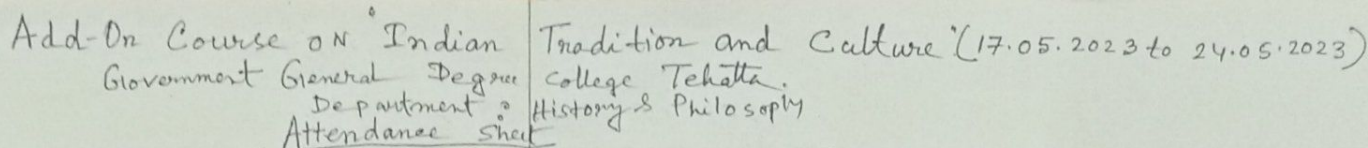 Add-On Course ON "Indian Tradition and Culture" (17.05.2023 to 24.05.2023)
Government General Degree College Tehatta.
Department : History & Philosophy
Attendance Sheet